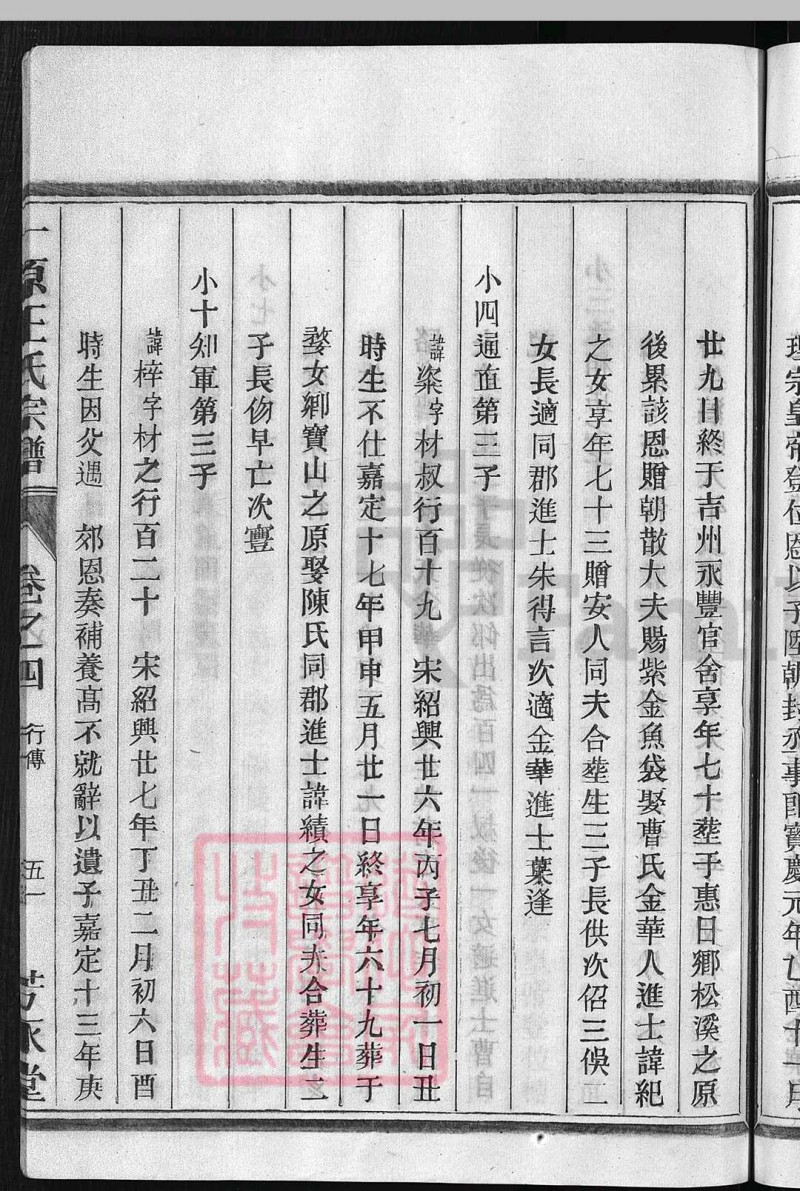 理宗皇帝登位恩以子陞朝封承事郎寶慶元年乙酉十一月
廿九日終于吉州永豐官舍享年七十塟于惠日鄉松溪之原
後累該恩贈朝散大夫賜紫金魚袋娶曹氏金華人進士諱紀
之女享年七十三贈安人同夫合塟生三子長供次侶三俁二
女長適同郡進士朱得言次適金華進士葉逢
小四通直第三子
諱楶字材叔行百十九 宋紹興廿六年丙子七月初一日丑
時生不仕嘉定十七年甲申五月廿一日終享年六十九葬于
婺女鄉寶山之原娶陳氏同郡進士諱績之女同夫合葬生二
子長伆早亡次亹
小十知軍第三子
諱梓字材之行百二十 宋紹興廿七年丁丑二月初六日酉
時生因父遇 郊恩奏補養高不就辭以遺子嘉定十三年庚
原王氏宗譜 卷之四 行傳 五一